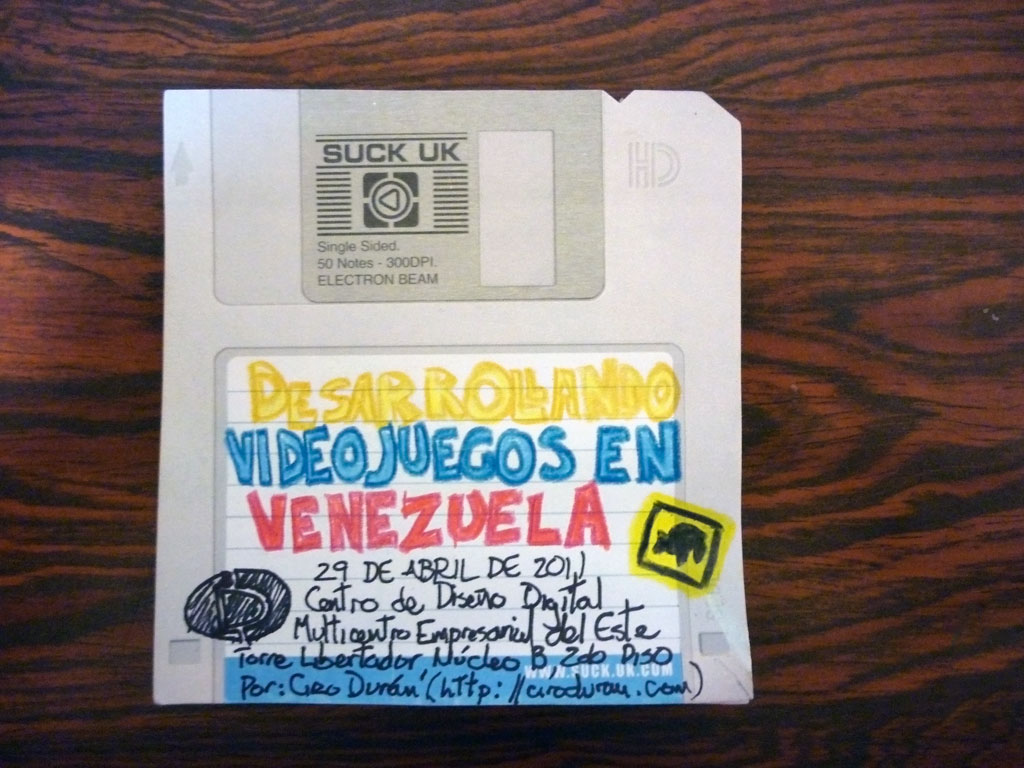 SUCK UK
HD
Single Sided.
50 Notes - 300DPI.
ELECTRON BEAM
DESARROLLANDO
VIDEOJUEGOS EN
VENEZUELA
29 DE ABRIL DE 2011
Centro de Diseño Digital
Multicentro Empresarial del Este
Torre Libertador Núcleo B 2do Piso
WWW.SUCK.UK.COM
Por: Ciro Durán (http://ciroduran.com)